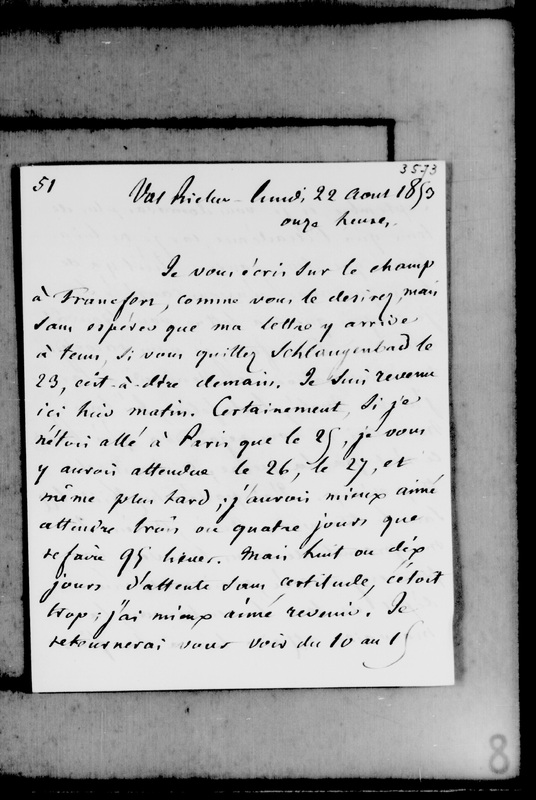 3573
51
Val Richer - lundi, 22 aout 1853
onze heures.
Je vous écris sur le champ
à Francfort, comme vous le desirez, mais
sans espérer que ma lettre y arrive
à tems, si vous quittez Schlangenbad le
23, c'est-à-dire demain. Je suis revenu
ici hier matin. Certainement, si je
n'étois allé à Paris que le 25, je vous
y aurois attendue le 26, le 27, et
même plus tard ; j'aurois mieux aimé
attendre trois ou quatre jours que
refaire 95 lieues. Mais huit ou dix
jours d'attente sans certitude, c'étoit
trop ; j'ai mieux aimé revenir. Je
retournerai vous voir du 10 au 15
8